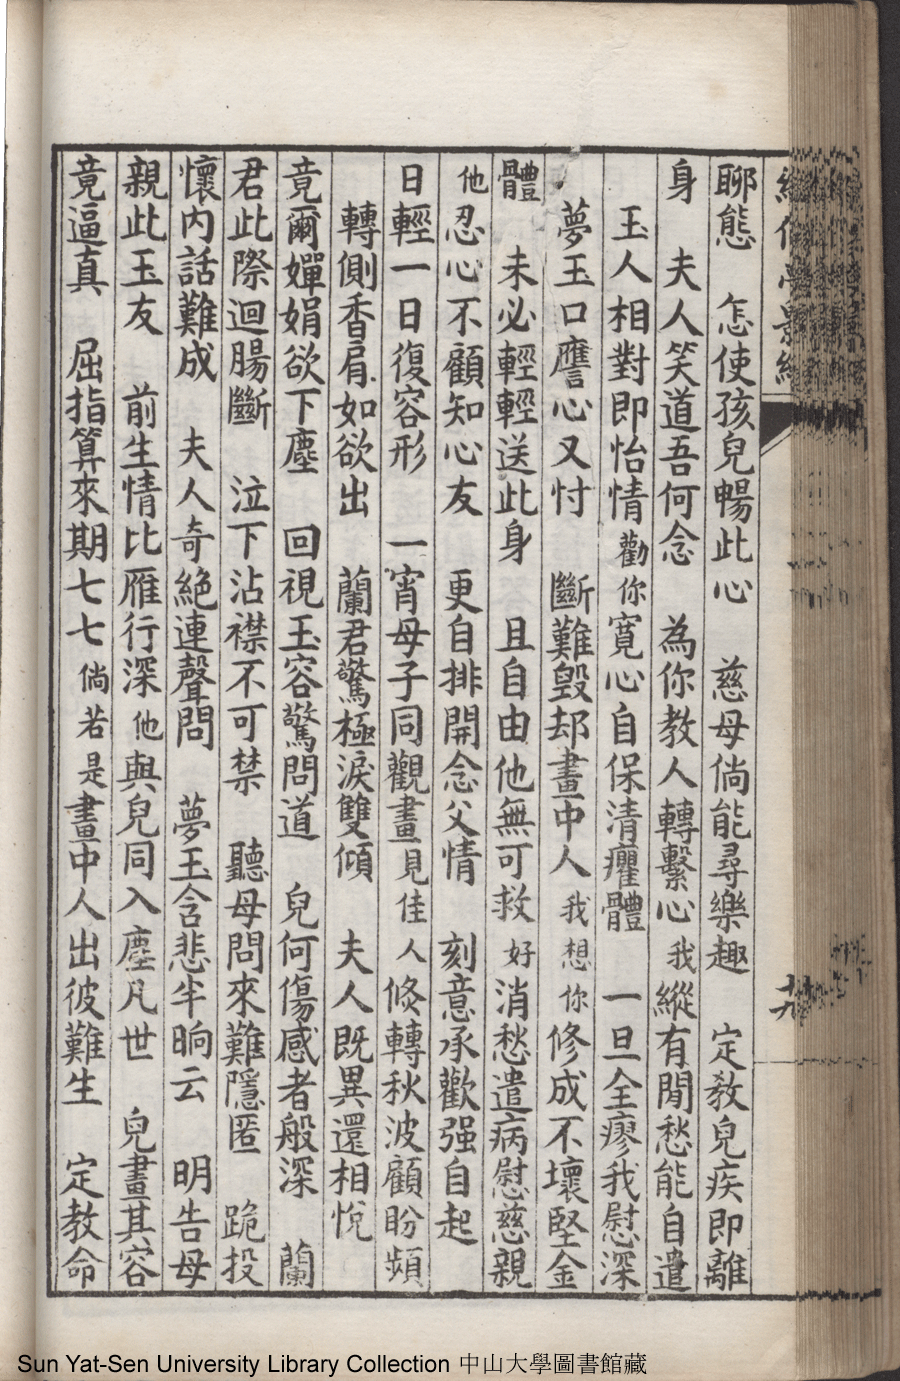 聊態　怎使孩兒暢此心　慈母倘能尋樂趣　定教兒疾即離
身　夫人笑道吾何念　為你教人轉繫心我縱有閒愁能自遣
玉人相對即怡情勸你寬心自保清癯體　一旦全瘳我慰深
夢玉口譍心又忖　斷難毀却畫中人我想你修成不壞堅金
體　未必輕輕送此身　且自由他無可救好消愁遣病慰慈親
他忍心不顧知心友　更自排開念父情　刻意承歡强自起
日輕一日復容形　一宵母子同觀畫見佳人倐轉秋波顧盼頻
轉側香肩如欲出　蘭君驚極淚雙傾　夫人既異還相悅
竟爾嬋娟欲下塵　回視玉容驚問道　兒何傷感者般深　蘭
君此際迴腸斷　泣下沾襟不可禁　聽母問來難隱匿　跪投
懷內話難成　夫人奇絕連聲問　夢玉含悲半晌云　明告母
親此玉友　前生情比雁行深他與兒同入塵凡世　兒畫其容
竟逼真　屈指算來期七七倘若是畫中人出彼難生　定教命
十九
Sun Yat-Sen University Library Collection 中山大學圖書館藏